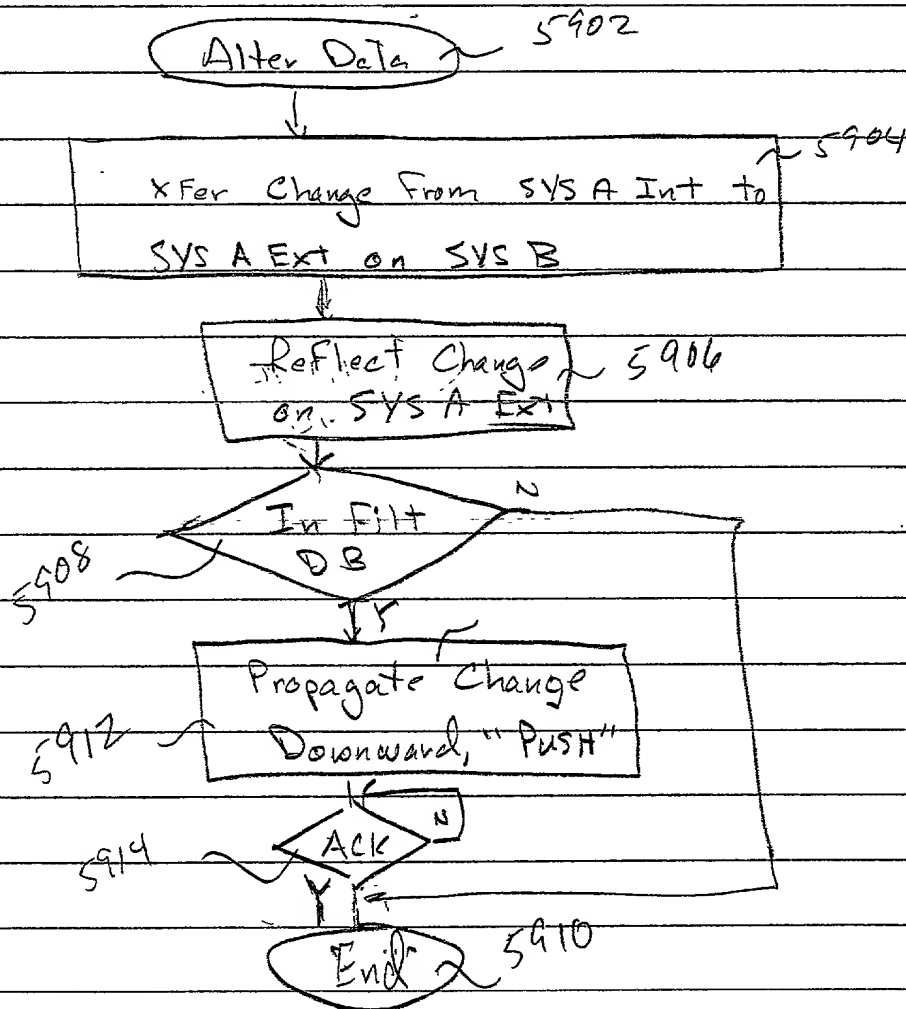 Alter Data
5902
5904
XFer Change From SYS A Int to
SYS A Ext on SYS B
Reflect Change
on SYS A Ext
5906
In Filt
DB
N
5908
Y
Propagate Change
Downward, "PUSH"
5912
N
ACK
5914
Y
End
5910